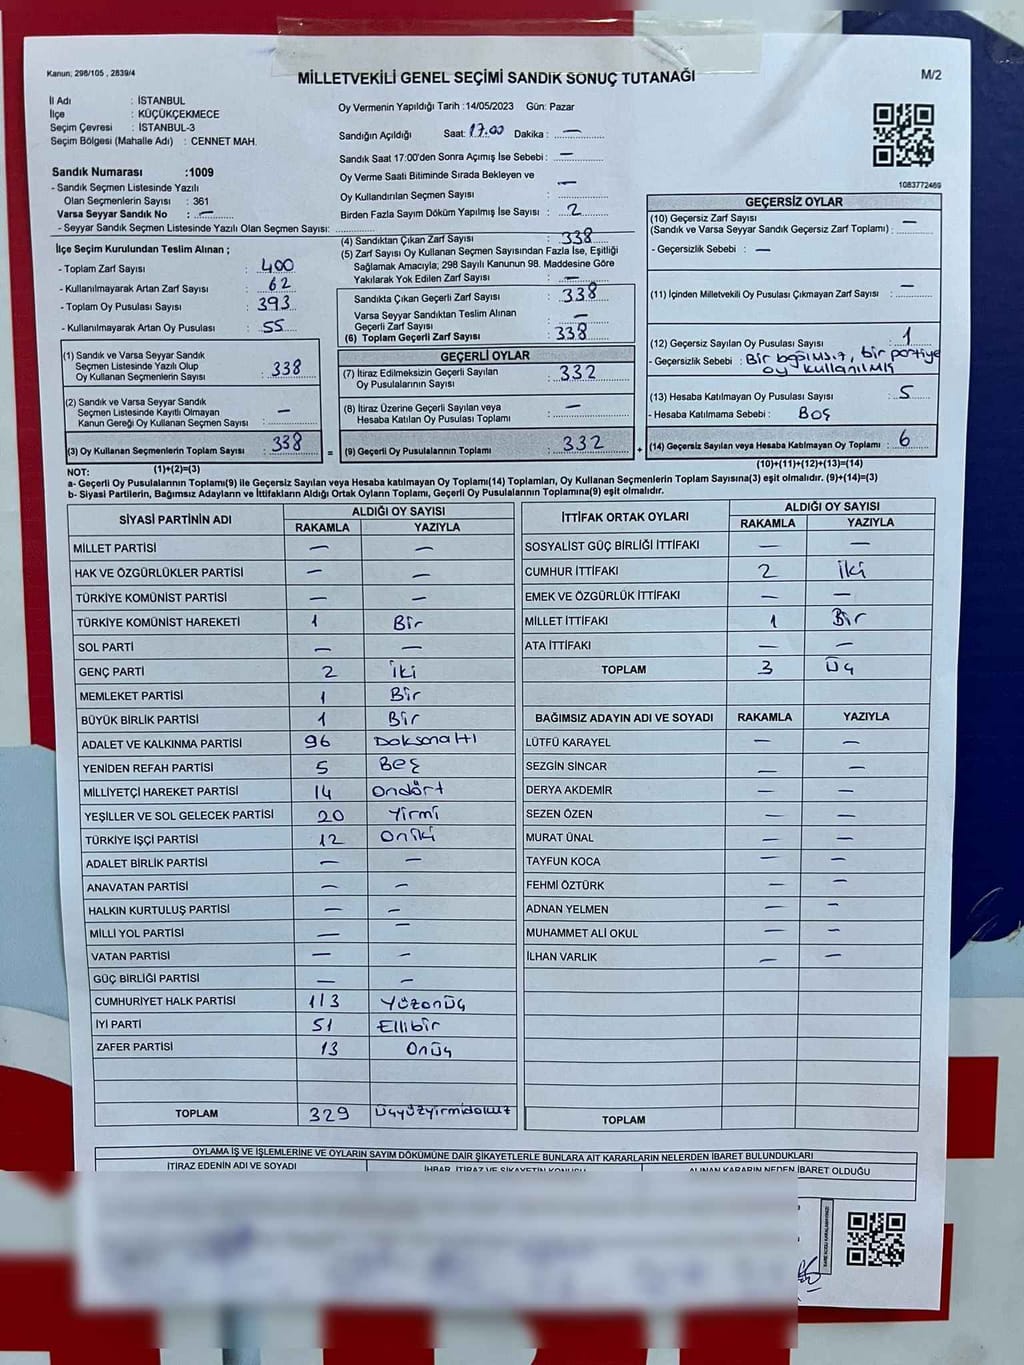 Kanun; 298/105 , 2839/4
MİLLETVEKİLİ GENEL SEÇİMİ SANDIK SONUÇ TUTANAĞI
M/2
İl Adı : İSTANBUL
İlçe : KÜÇÜKÇEKMECE
Seçim Çevresi : İSTANBUL-3
Seçim Bölgesi (Mahalle Adı) : CENNET MAH.
Sandık Numarası :1009
- Sandık Seçmen Listesinde Yazılı
Olan Seçmenlerin Sayısı : 361
Varsa Seyyar Sandık No : —
- Seyyar Sandık Seçmen Listesinde Yazılı Olan Seçmen Sayısı:
Oy Vermenin Yapıldığı Tarih :14/05/2023 Gün: Pazar
Sandığın Açıldığı Saat: 17.00 Dakika : —
Sandık Saat 17:00'den Sonra Açımış İse Sebebi : —
Oy Verme Saati Bitiminde Sırada Bekleyen ve
Oy Kullandırılan Seçmen Sayısı : —
Birden Fazla Sayım Döküm Yapılmış İse Sayısı : 2
1083772469
İlçe Seçim Kurulundan Teslim Alınan ;
- Toplam Zarf Sayısı : 400
- Kullanılmayarak Artan Zarf Sayısı : 62
- Toplam Oy Pusulası Sayısı : 393
- Kullanılmayarak Artan Oy Pusulası : 55
(1) Sandık ve Varsa Seyyar Sandık
Seçmen Listesinde Yazılı Olup
Oy Kullanan Seçmenlerin Sayısı : 338
(2) Sandık ve Varsa Seyyar Sandık
Seçmen Listesinde Kayıtlı Olmayan
Kanun Gereği Oy Kullanan Seçmen Sayısı : —
(3) Oy Kullanan Seçmenlerin Toplam Sayısı : 338
(4) Sandıktan Çıkan Zarf Sayısı : 338
(5) Zarf Sayısı Oy Kullanan Seçmen Sayısından Fazla İse, Eşitliği
Sağlamak Amacıyla; 298 Sayılı Kanunun 98. Maddesine Göre
Yakılarak Yok Edilen Zarf Sayısı : —
Sandıkta Çıkan Geçerli Zarf Sayısı : 338
Varsa Seyyar Sandıktan Teslim Alınan
Geçerli Zarf Sayısı : —
(6) Toplam Geçerli Zarf Sayısı : 338
GEÇERLİ OYLAR
(7) İtiraz Edilmeksizin Geçerli Sayılan
Oy Pusulalarının Sayısı : 332
(8) İtiraz Üzerine Geçerli Sayılan veya
Hesaba Katılan Oy Pusulası Toplamı : —
= (9) Geçerli Oy Pusulalarının Toplamı : 332 +
GEÇERSİZ OYLAR
(10) Geçersiz Zarf Sayısı
(Sandık ve Varsa Seyyar Sandık Geçersiz Zarf Toplamı) : —
- Geçersizlik Sebebi : —
(11) İçinden Milletvekili Oy Pusulası Çıkmayan Zarf Sayısı : —
(12) Geçersiz Sayılan Oy Pusulası Sayısı : 1
- Geçersizlik Sebebi : Bir bağımsız, bir partiye
oy kullanılmış
(13) Hesaba Katılmayan Oy Pusulası Sayısı : 5
- Hesaba Katılmama Sebebi : Boş
(14) Geçersiz Sayılan veya Hesaba Katılmayan Oy Toplamı : 6
NOT: (1)+(2)=(3)
(10)+(11)+(12)+(13)=(14)
a- Geçerli Oy Pusulalarının Toplamı(9) ile Geçersiz Sayılan veya Hesaba katılmayan Oy Toplamı(14) Toplamları, Oy Kullanan Seçmenlerin Toplam Sayısına(3) eşit olmalıdır. (9)+(14)=(3)
b- Siyasi Partilerin, Bağımsız Adayların ve İttifakların Aldığı Ortak Oyların Toplamı, Geçerli Oy Pusulalarının Toplamına(9) eşit olmalıdır.
SİYASİ PARTİNİN ADI ALDIĞI OY SAYISI
RAKAMLA YAZIYLA
MİLLET PARTİSİ — —
HAK VE ÖZGÜRLÜKLER PARTİSİ — —
TÜRKİYE KOMÜNİST PARTİSİ — —
TÜRKİYE KOMÜNİST HAREKETİ 1 Bir
SOL PARTİ — —
GENÇ PARTİ 2 İki
MEMLEKET PARTİSİ 1 Bir
BÜYÜK BİRLİK PARTİSİ 1 Bir
ADALET VE KALKINMA PARTİSİ 96 Doksanaltı
YENİDEN REFAH PARTİSİ 5 Beş
MİLLİYETÇİ HAREKET PARTİSİ 14 Ondört
YEŞİLLER VE SOL GELECEK PARTİSİ 20 Yirmi
TÜRKİYE İŞÇİ PARTİSİ 12 Oniki
ADALET BİRLİK PARTİSİ — —
ANAVATAN PARTİSİ — —
HALKIN KURTULUŞ PARTİSİ — —
MİLLİ YOL PARTİSİ — —
VATAN PARTİSİ — —
GÜÇ BİRLİĞİ PARTİSİ — —
CUMHURİYET HALK PARTİSİ 113 Yüzonüç
İYİ PARTİ 51 Ellibir
ZAFER PARTİSİ 13 Onüç
TOPLAM 329 Üçyüzyirmidokuz
İTTİFAK ORTAK OYLARI ALDIĞI OY SAYISI
RAKAMLA YAZIYLA
SOSYALİST GÜÇ BİRLİĞİ İTTİFAKI — —
CUMHUR İTTİFAKI 2 İki
EMEK VE ÖZGÜRLÜK İTTİFAKI — —
MİLLET İTTİFAKI 1 Bir
ATA İTTİFAKI — —
TOPLAM 3 Üç
BAĞIMSIZ ADAYIN ADI VE SOYADI RAKAMLA YAZIYLA
LÜTFÜ KARAYEL — —
SEZGİN SİNCAR — —
DERYA AKDEMİR — —
SEZEN ÖZEN — —
MURAT ÜNAL — —
TAYFUN KOCA — —
FEHMİ ÖZTÜRK — —
ADNAN YELMEN — —
MUHAMMET ALİ OKUL — —
İLHAN VARLIK — —
TOPLAM
OYLAMA İŞ VE İŞLEMLERİNE VE OYLARIN SAYIM DÖKÜMÜNE DAİR ŞİKAYETLERLE BUNLARA AİT KARARLARIN NELERDEN İBARET BULUNDUKLARI
İTİRAZ EDENİN ADI VE SOYADI İHBAR, İTİRAZ VE ŞİKAYETİN KONUSU ALINAN KARARIN NEDEN İBARET OLDUĞU